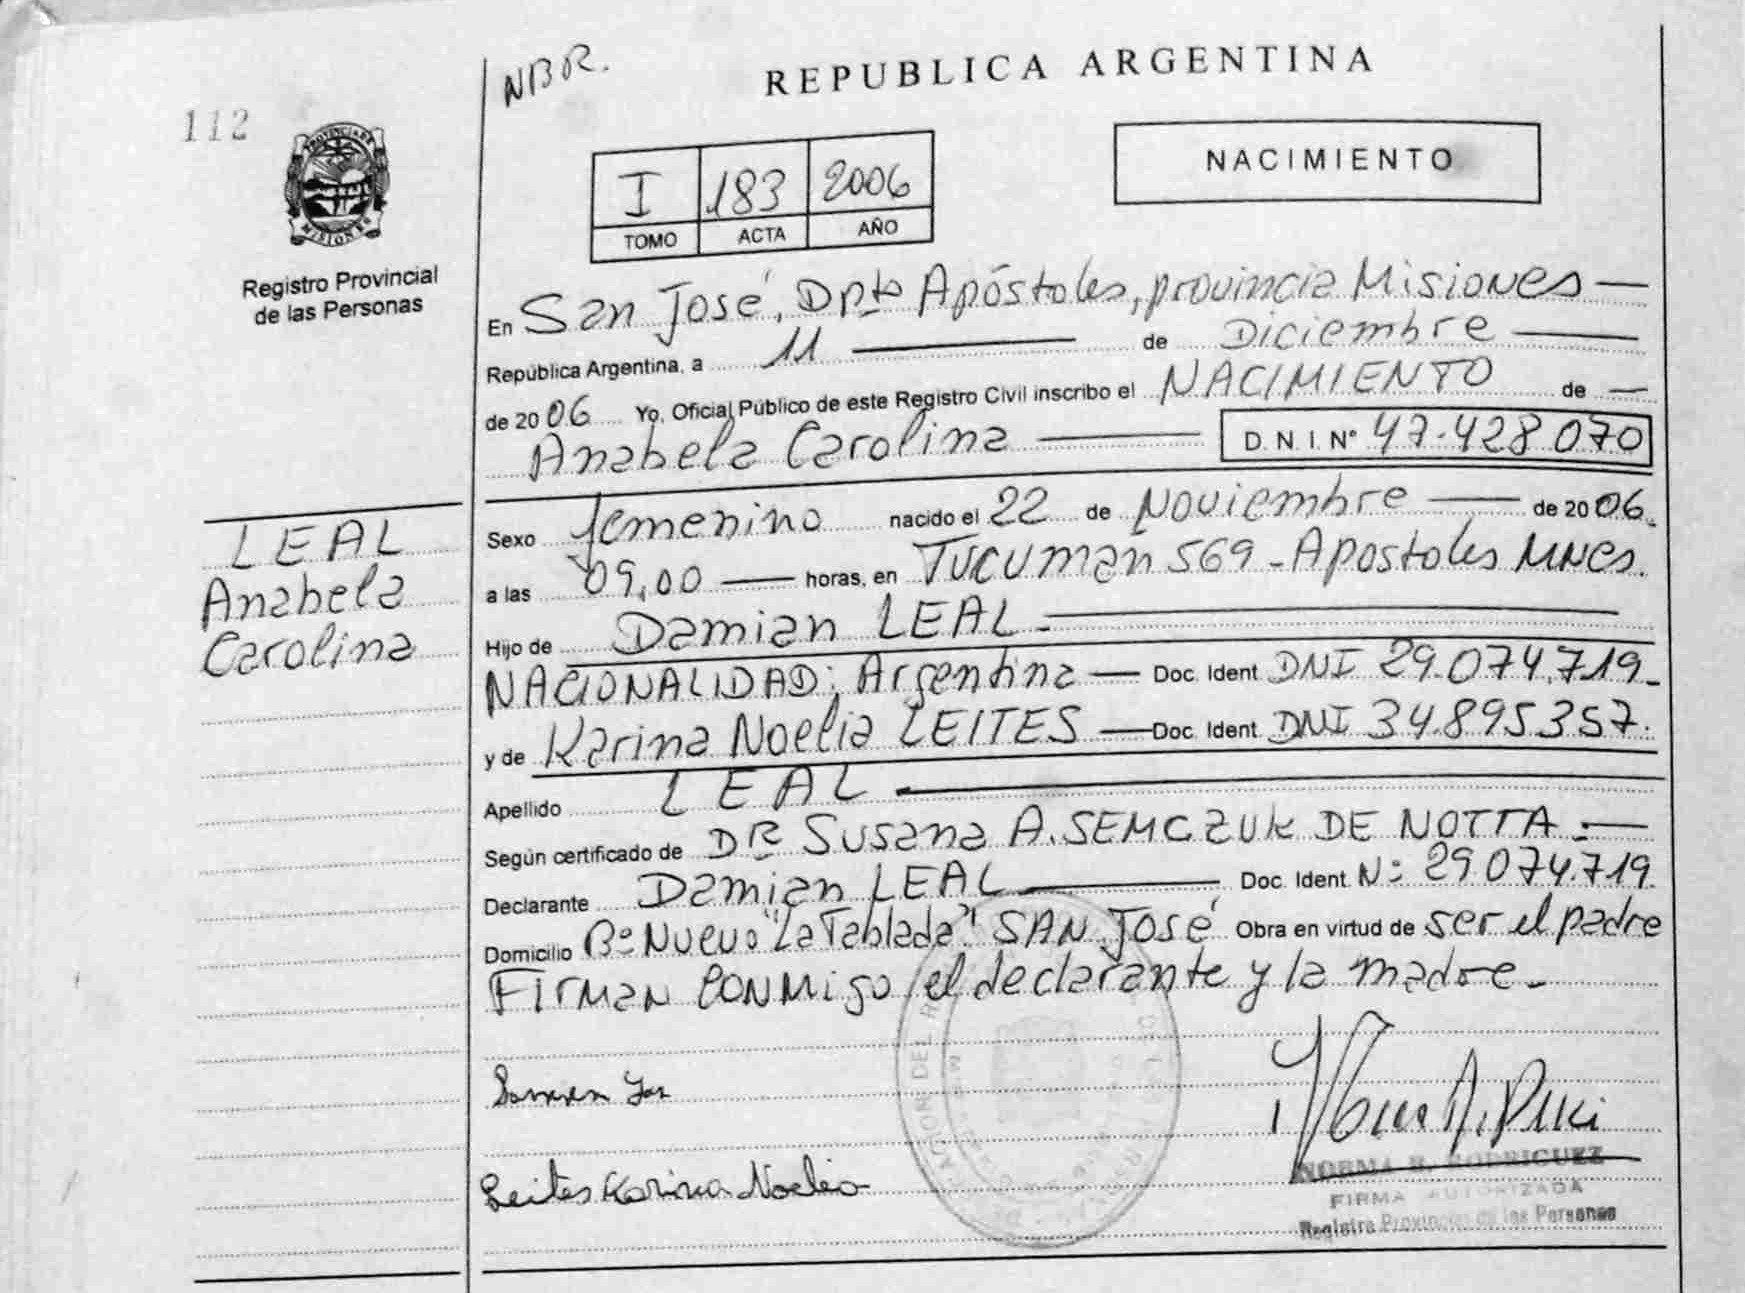 NBR.
REPUBLICA ARGENTINA
112
NACIMIENTO
I 183 2006
TOMO ACTA AÑO
PROVINCIA DE
MISIONES
Registro Provincial
de las Personas
En San José, Dpto Apóstoles, provincia Misiones
República Argentina, a 11 de Diciembre
de 2006 Yo, Oficial Público de este Registro Civil inscribo el NACIMIENTO de
Anabela Carolina D.N.I. Nº 47.428.070
LEAL
Anabela
Carolina
Sexo femenino nacido el 22 de Noviembre de 2006.
a las 09,00 horas, en Tucuman 569 - Apostoles Mnes.
Hijo de Damian LEAL.
NACIONALIDAD: Argentina Doc. Ident. DNI 29.074.719.
y de Karina Noelia LEITES Doc. Ident. DNI 34.895.357.
Apellido LEAL
Según certificado de DRA Susana A. SEMCZUK DE NOTTA.
Declarante Damian LEAL Doc. Ident. N: 29.074.719.
Domicilio Bº Nuevo "La Tablada" SAN José Obra en virtud de ser el padre
Firman conmigo el declarante y la madre.
Leites Karina Noelia
NORMA B. RODRIGUEZ
FIRMA AUTORIZADA
Registro Provincial de las Personas